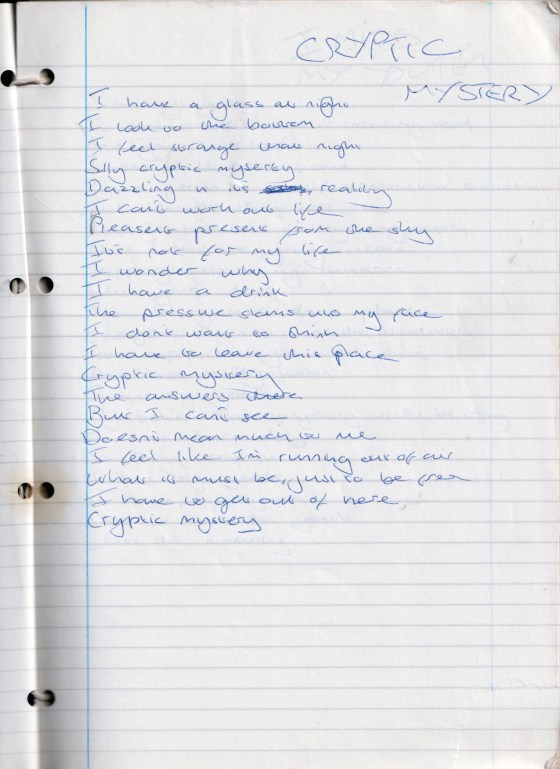 CRYPTIC
MYSTERY
I have a glass at night
I look to the bottom
I feel strange that night
Silly cryptic mystery
Dazzling in its reality
I can't work out life
Pleasent present from the sky
It's not for my life
I wonder why
I have a drink
The pressure slams into my face
I dont want to think
I have to leave this place
Cryptic mystery
The answers there
But I can't see
Doesn't mean much to me
I feel like I'm running out of air
What it must be, just to be free
I have to get out of here,
Cryptic mystery